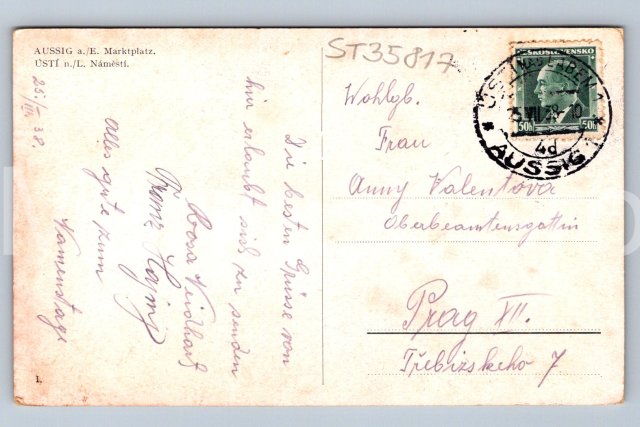 AUSSIG a./E. Marktplatz.
ÚSTÍ n./L. Náměstí.
25./VII. 38.
ST35817
ČESKOSLOVENSKO
50h 50h
ÚSTÍ NAD LABEM 1
25.VII.38
4d
* AUSSIG
Wohlgb.
Frau
Anny Valentova
Oberbeamtensgattin
Prag XII.
Třebizskeho 7
Die besten Grüsse von
hier erlaubt sich zu senden
Rosa Neidhart
Franz
Alles gute zum
Namenstage
1.